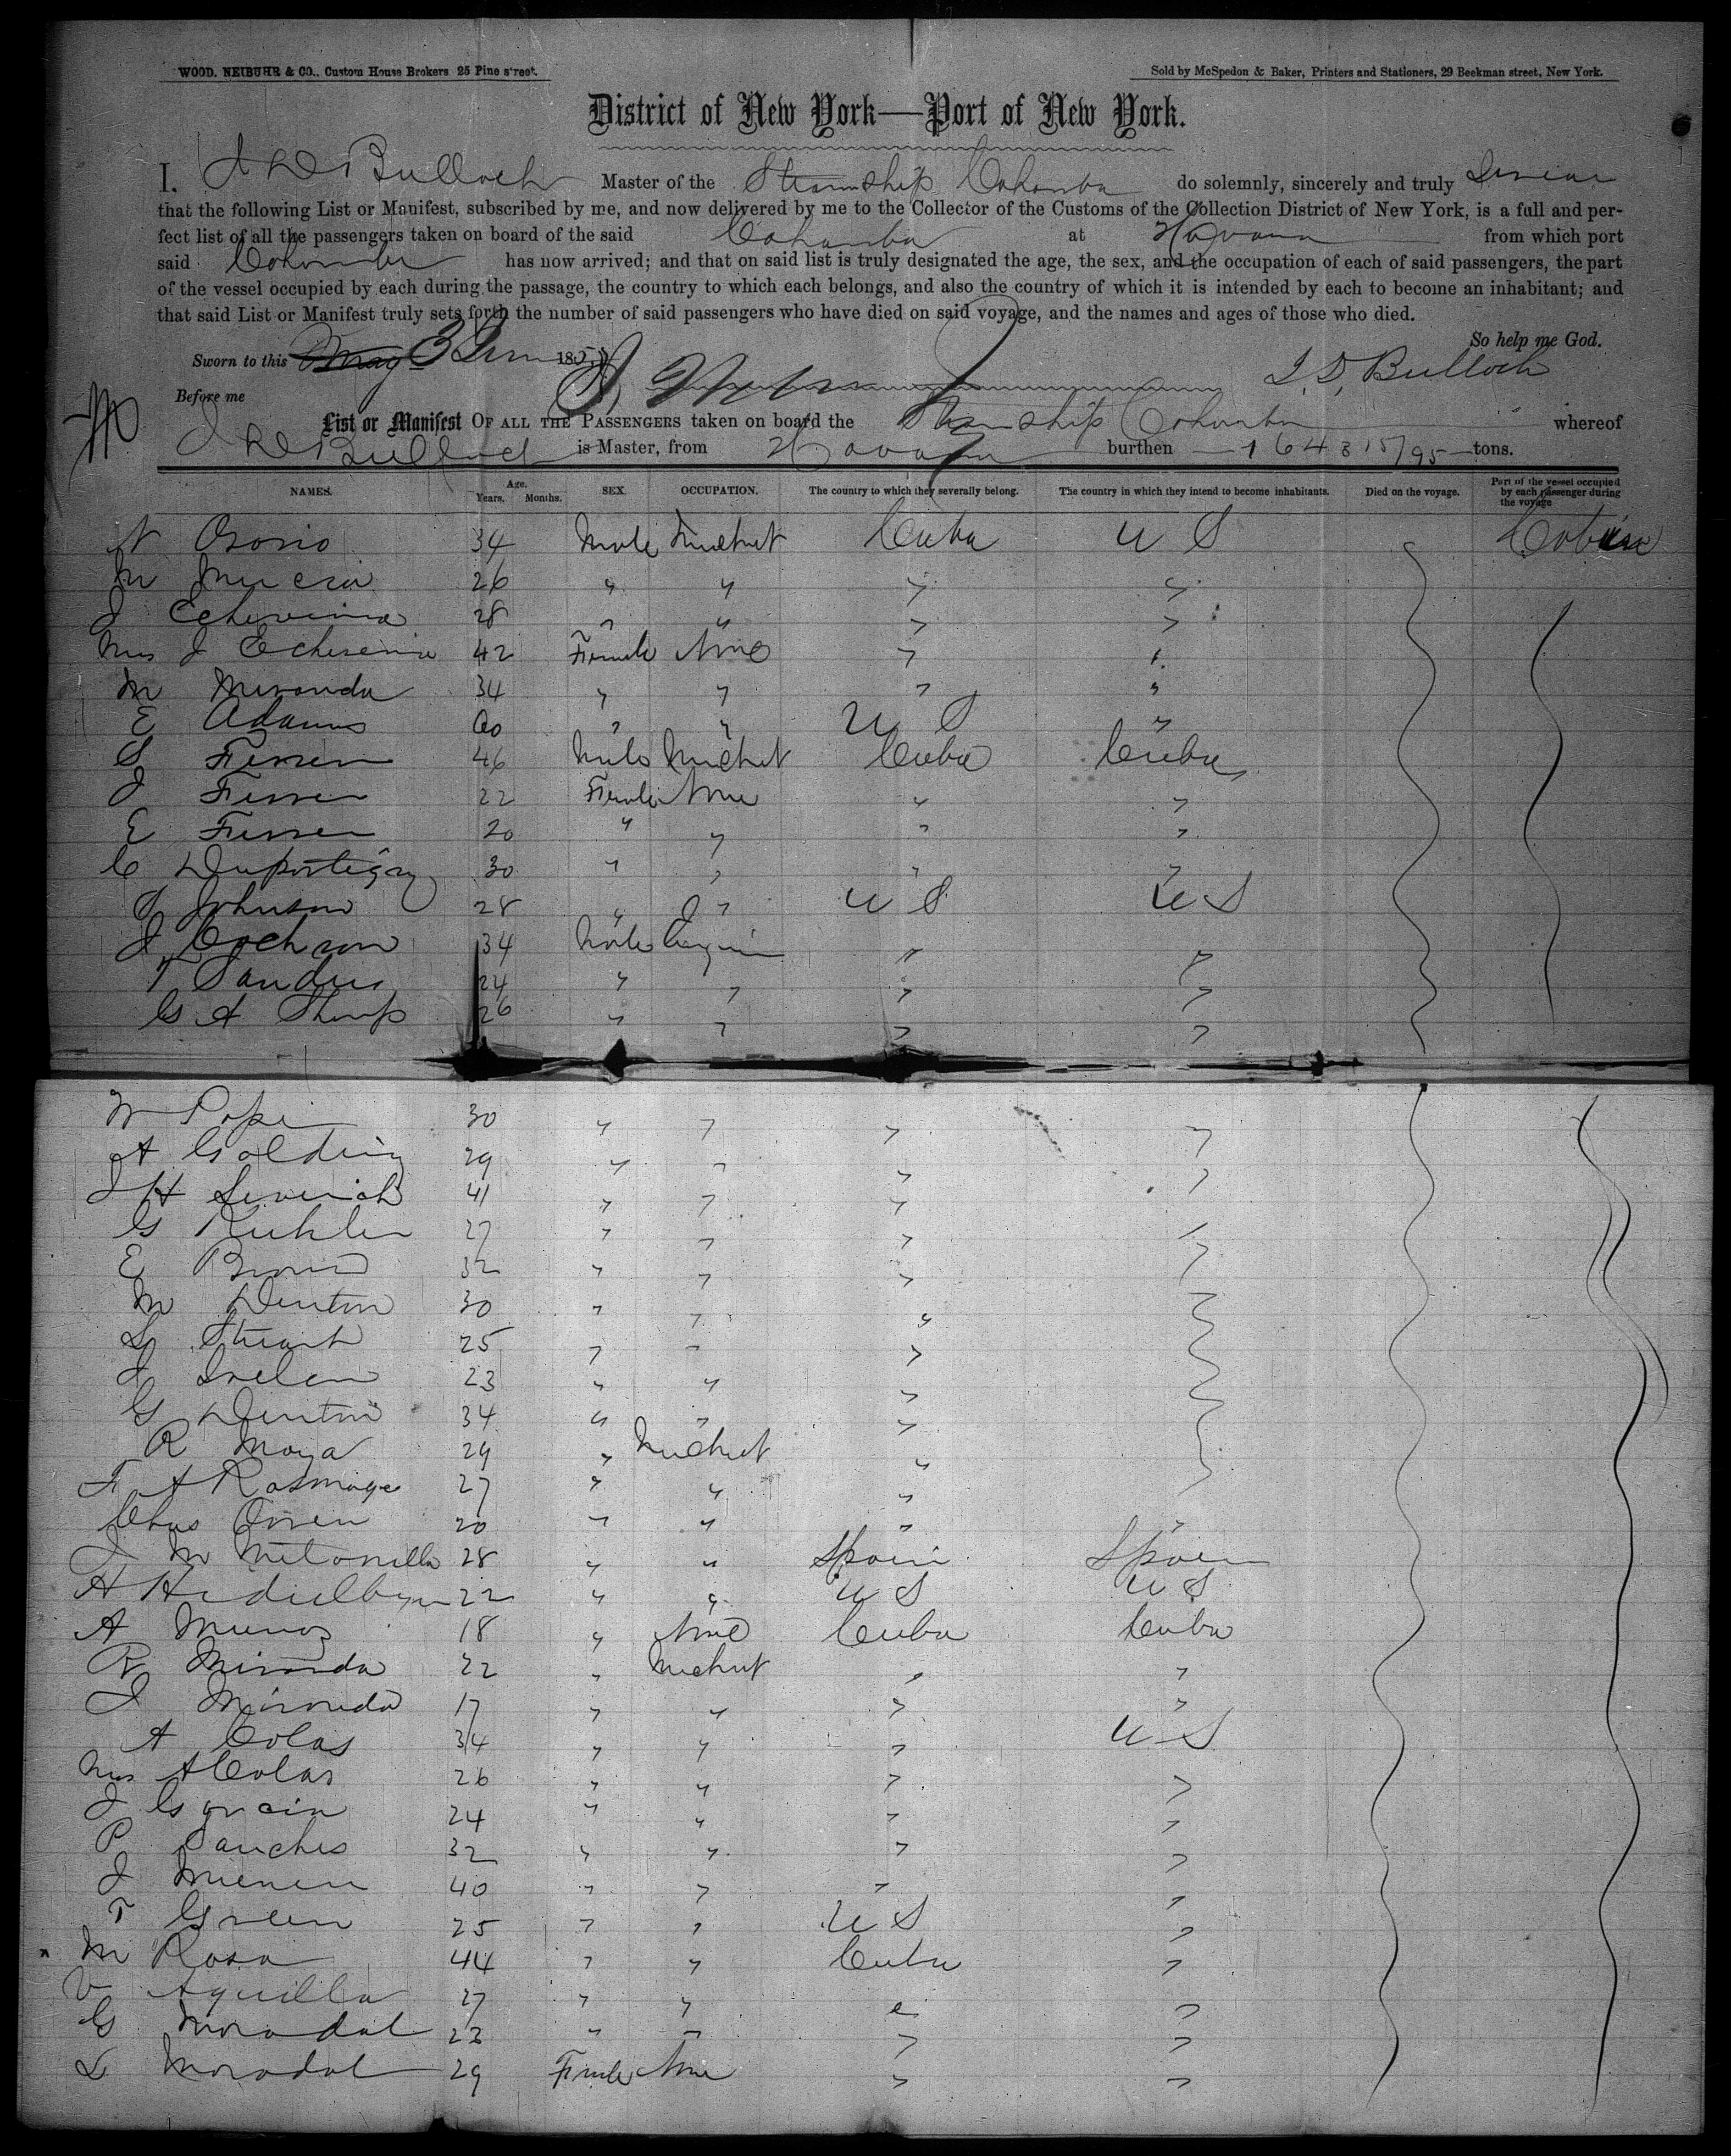 WOOD, NEIBUHR & CO., Custom House Brokers 25 Pine street.
Sold by McSpedon & Baker, Printers and Stationers, 29 Beekman street, New York.
District of New York—Port of New York.
I, J D Bulloch Master of the Steamship Cahawba do solemnly, sincerely and truly Swear
that the following List or Manifest, subscribed by me, and now delivered by me to the Collector of the Customs of the Collection District of New York, is a full and per-
fect list of all the passengers taken on board of the said Cahawba at Havana from which port
said Cahawba has now arrived; and that on said list is truly designated the age, the sex, and the occupation of each of said passengers, the part
of the vessel occupied by each during the passage, the country to which each belongs, and also the country of which it is intended by each to become an inhabitant; and
that said List or Manifest truly sets forth the number of said passengers who have died on said voyage, and the names and ages of those who died.
So help me God.
Sworn to this May 3 June 185 J. D. Bulloch
Before me
List or Manifest OF ALL THE PASSENGERS taken on board the Steamship Cahawba whereof
J D Bulloch is Master, from Havana burthen 1643 15/95 tons.
NAMES. Age. Years. Months. SEX. OCCUPATION. The country to which they severally belong. The country in which they intend to become inhabitants. Died on the voyage. Part of the vessel occupied by each passenger during the voyage
N Osorio 34 Male Mechnt Cuba U S Cabin
M 26 " " " "
J Echeverria 28 " " " "
Mrs J Echeverria 42 Female None " "
M Miranda 34 " " " "
E Adams 60 " " U S "
S Ferrer 46 Male Mechnt Cuba Cuba
J Ferrer 22 Female None " "
E Ferrer 20 " " " "
C 30 " " " "
J Johnson 28 " " U S U S
J Cochran 34 Male " "
T Sanders 24 " " " "
G A Sharp 26 " " " "
W Pope 30 " " " "
A Golding 29 " " " "
J H Leverich 41 " " " "
G Kuhler 27 " " " "
E Brown 32 " " " "
M Denton 30 " " "
L Stuart 25 " " "
J 23 " " "
G Denton 34 " " "
R Moya 29 " Mechnt "
F A 27 " " "
Chas Orren 20 " " " "
J M 28 " " Spain Spain
H 22 " " U S U S
A Munoz 18 " None Cuba Cuba
R Miranda 22 " Mechnt " "
J Miranda 17 " " " "
A Colas 34 " " " U S
Mrs A Colas 26 " " " "
J Garcia 24 " " " "
P Sanches 32 " " " "
J 40 " " " "
T Green 25 " " U S "
M Rosa 44 " " Cuba "
V Aquilla 27 " " " "
G Moradal 23 " " " "
L Moradal 29 Female None " "